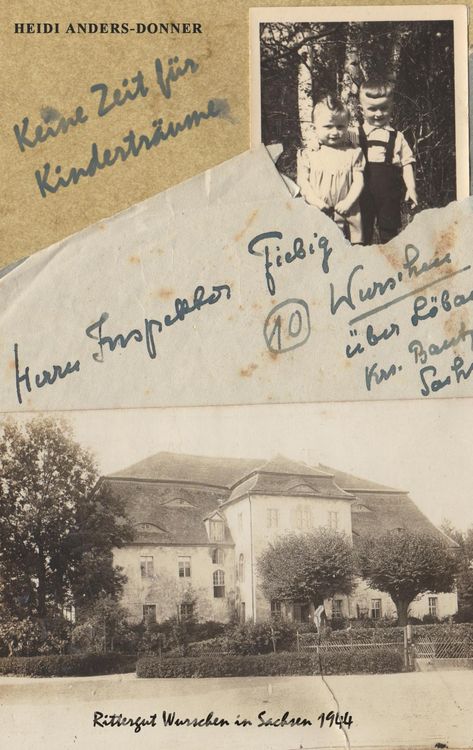 HEIDI ANDERS-DONNER
Keine Zeit für
Kinderträume
Herrn Inspektor Fiebig
10 Wurschen
über Löbau
Krs. Bautz
Sachs
Rittergut Wurschen in Sachsen 1944